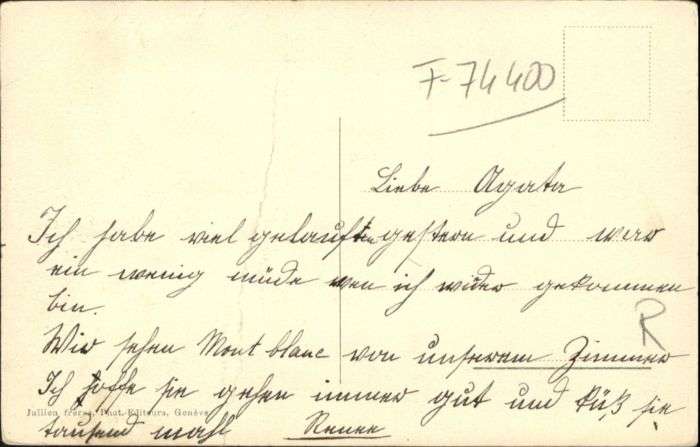 F-74400
Liebe Agata
Ich habe viel gelaufen gestern und war
ein wenig müde wen ich wider gekommen
bin.
R
Wir sehen Mont blanc von unserem Zimmer
Ich hoffe sie gehen immer gut und küß sie
Jullien frères, Phot. Editeurs, Genève
tausend mahl Renee